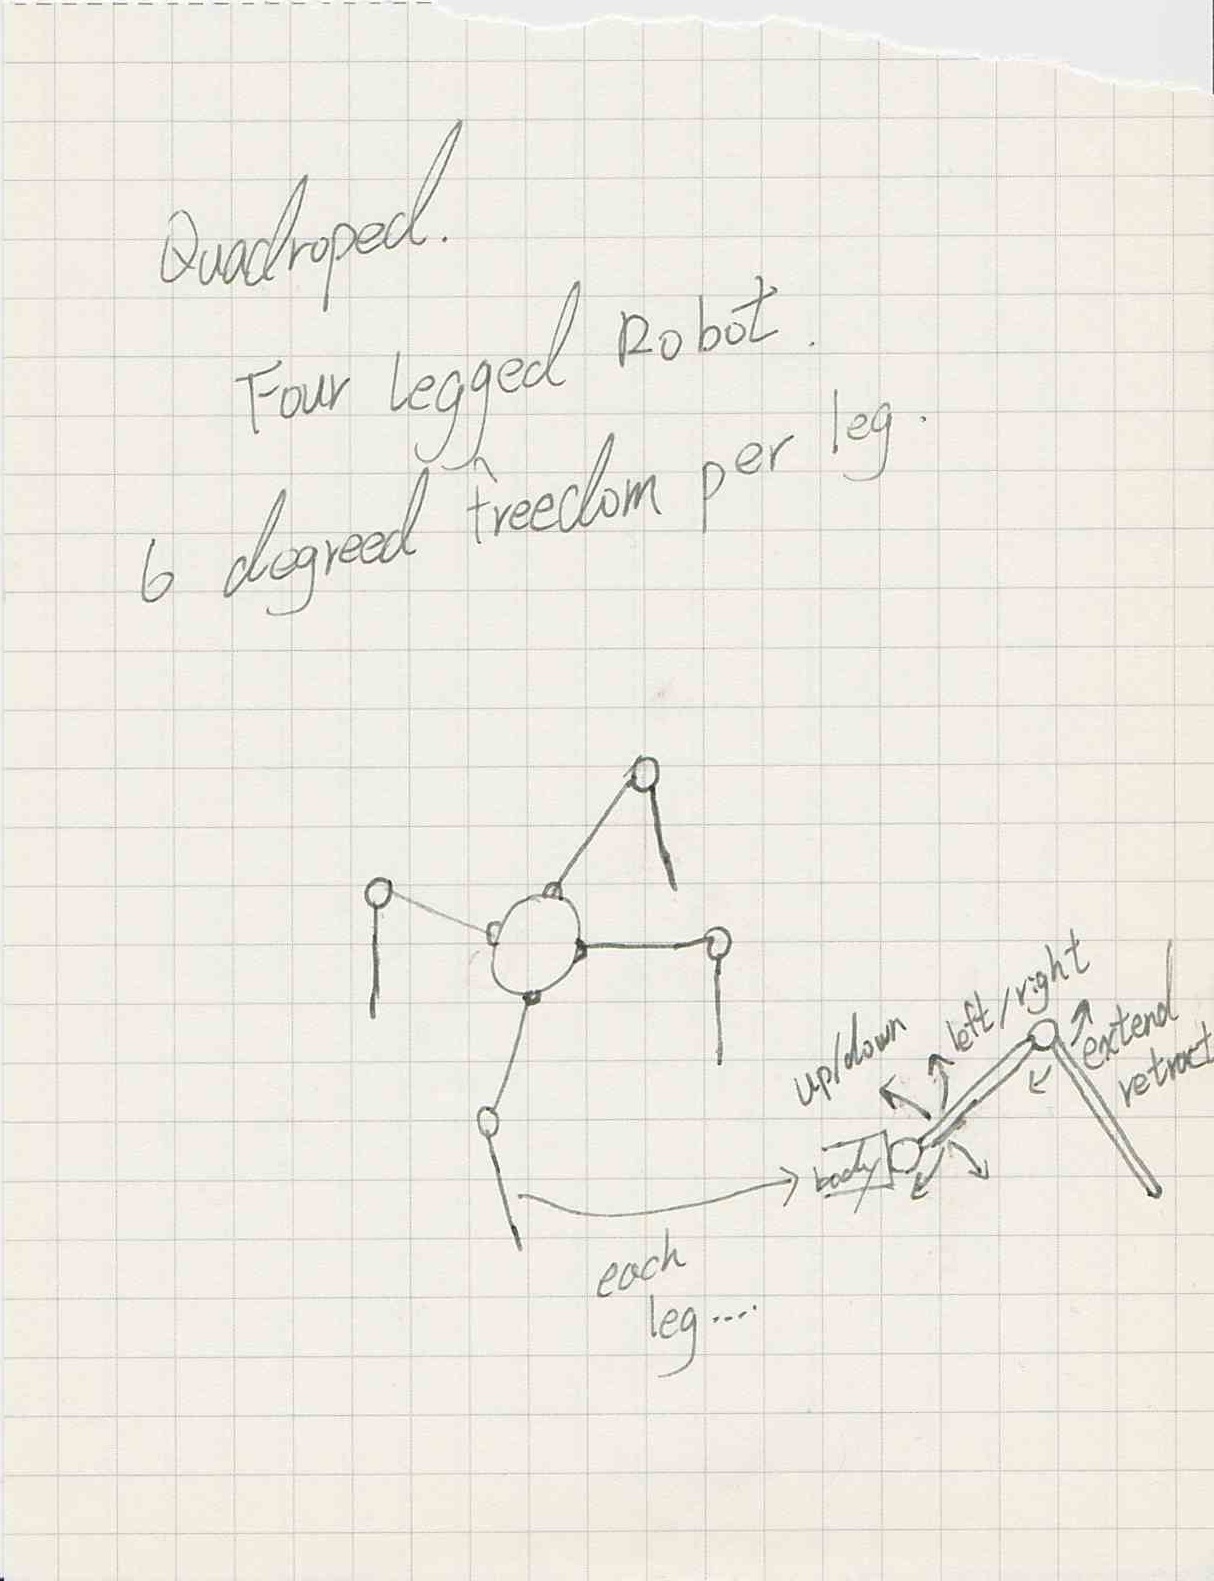 Quadroped.
Four legged Robot.
6 degreed freedom per leg.
up/down
left/right
extend
retract
body
each
leg....